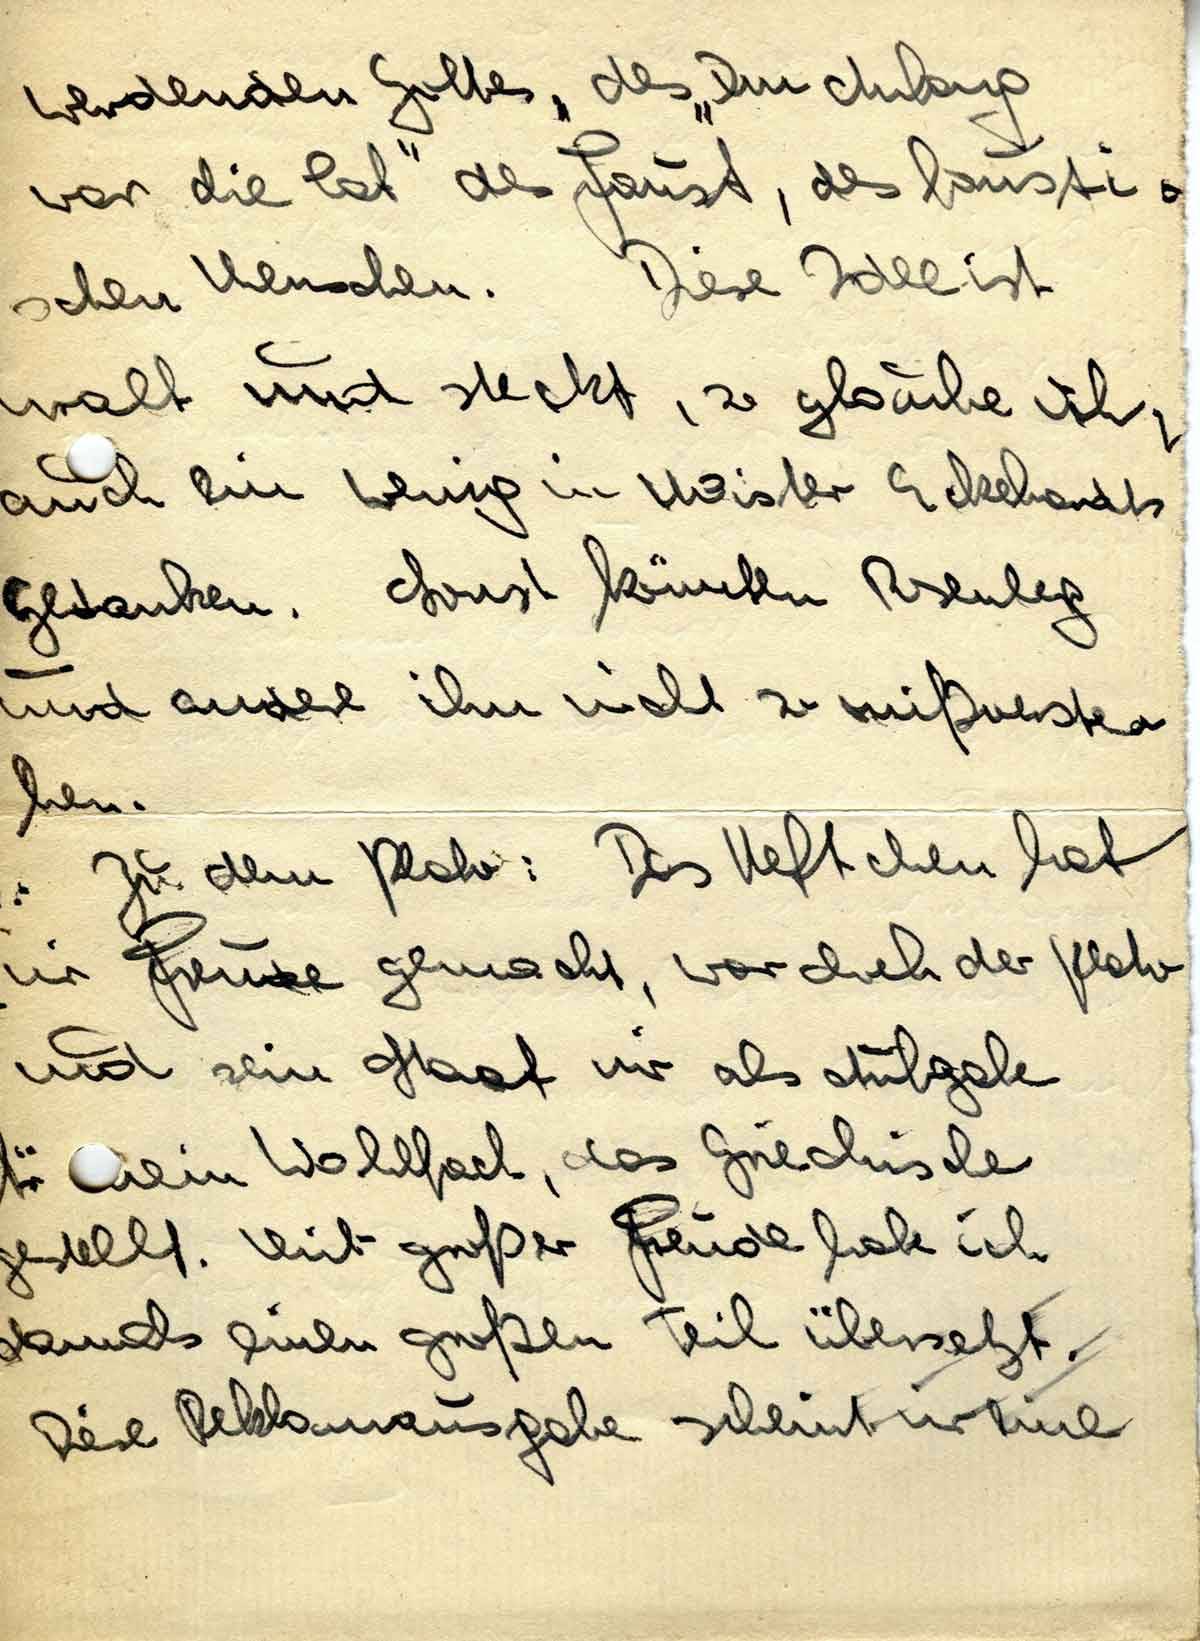 werdenden Gottes, des „Im Anfang
war die Tat" des Faust, des fausti-
schen Menschen. Diese Idee ist
uralt und steckt, so glaube ich,
auch ein wenig in Meister Eckehardts
Gedanken. Sonst könnten Rosenbeg
und andere ihn nicht so mißverste-
hen.
Zu dem Plato: Das Heftchen hat
mir Freude gemacht, war doch der Plato
und sein Staat mir als Aufgabe
für mein Wahlfach, das Griechische
gestellt. Mit großer Freude habe ich
damals einen großen Teil übersetzt.
Diese Reklamausgabe scheint mir eine